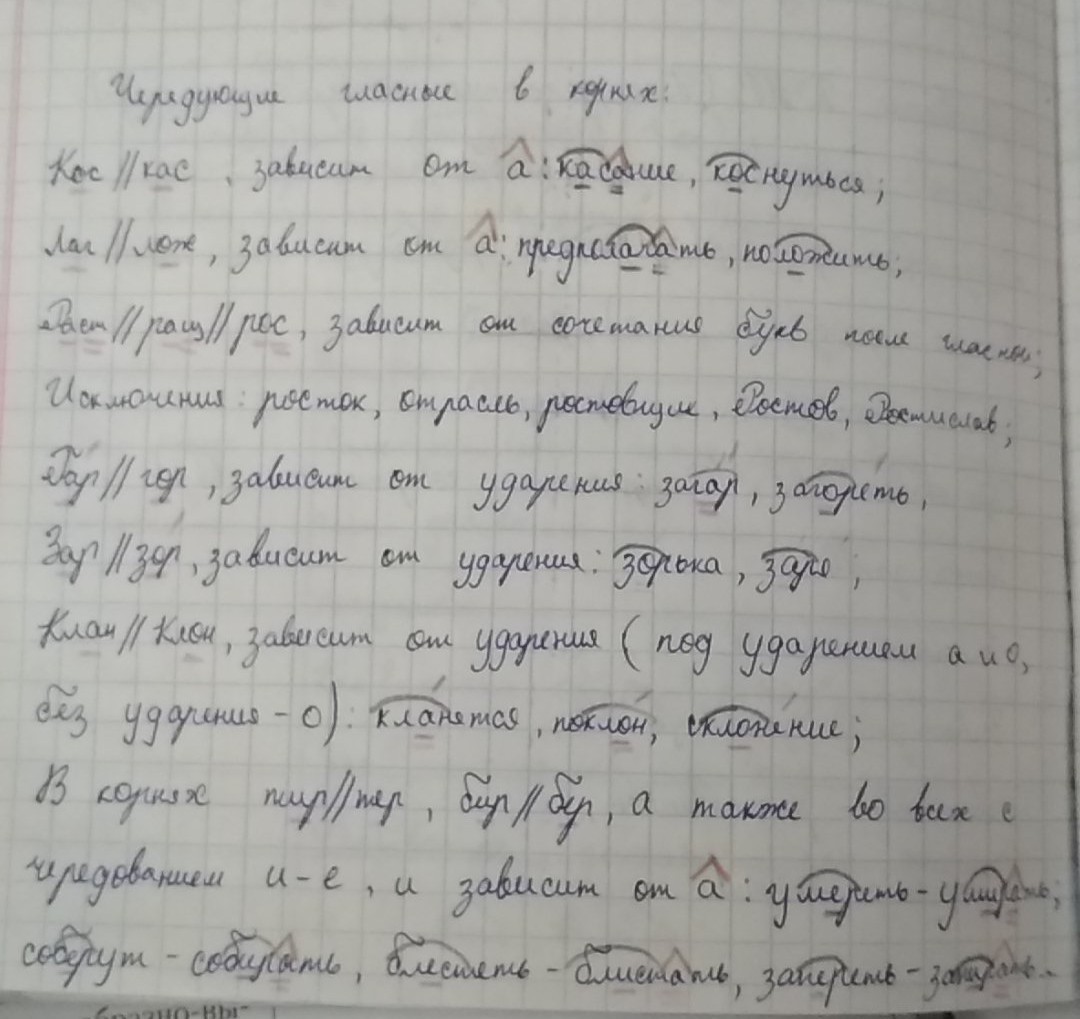 Чередующие гласные в корнях:
Кос//кас, зависит от а: касание, коснуться;
Лаг//лож, зависит от а: предполагать, положить;
Раст//ращ//рос, зависит от сочетания букв после гласны;
Исключения: росток, отрасль, ростовщик, Ростов, Ростислав;
Гар//гор, зависит от ударения: загар, загореть,
Зар//зор, зависит от ударения: зорька, заря;
Клан//Клон, зависит от ударения (под ударением а и о,
без ударения - о): кланятся, поклон, склонение;
В корнях пир//пер, бир//бер, а также во всех с
чередованием и-е, и зависит от а: умереть - умирать;
соберут - собирать, блестеть - блистать, запереть - запирать.
бразно-вы-